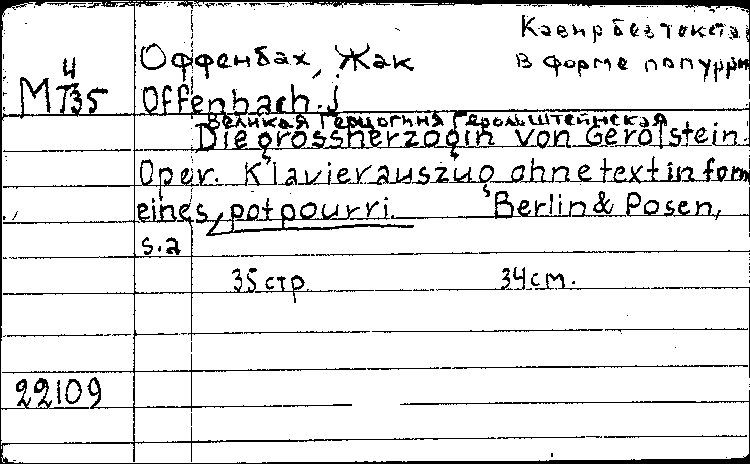 Клавир без текста
в форме попурри
Оффенбах, Жак
4
M T35
Offenbach. j
Великая Герцогиня Герольштейнская
Die grossherzogin von Gerolstein.
Oper. Klavierauszug ohne text in form
eines potpourri. Berlin & Posen,
s.a
35 стр 34 см.
22109